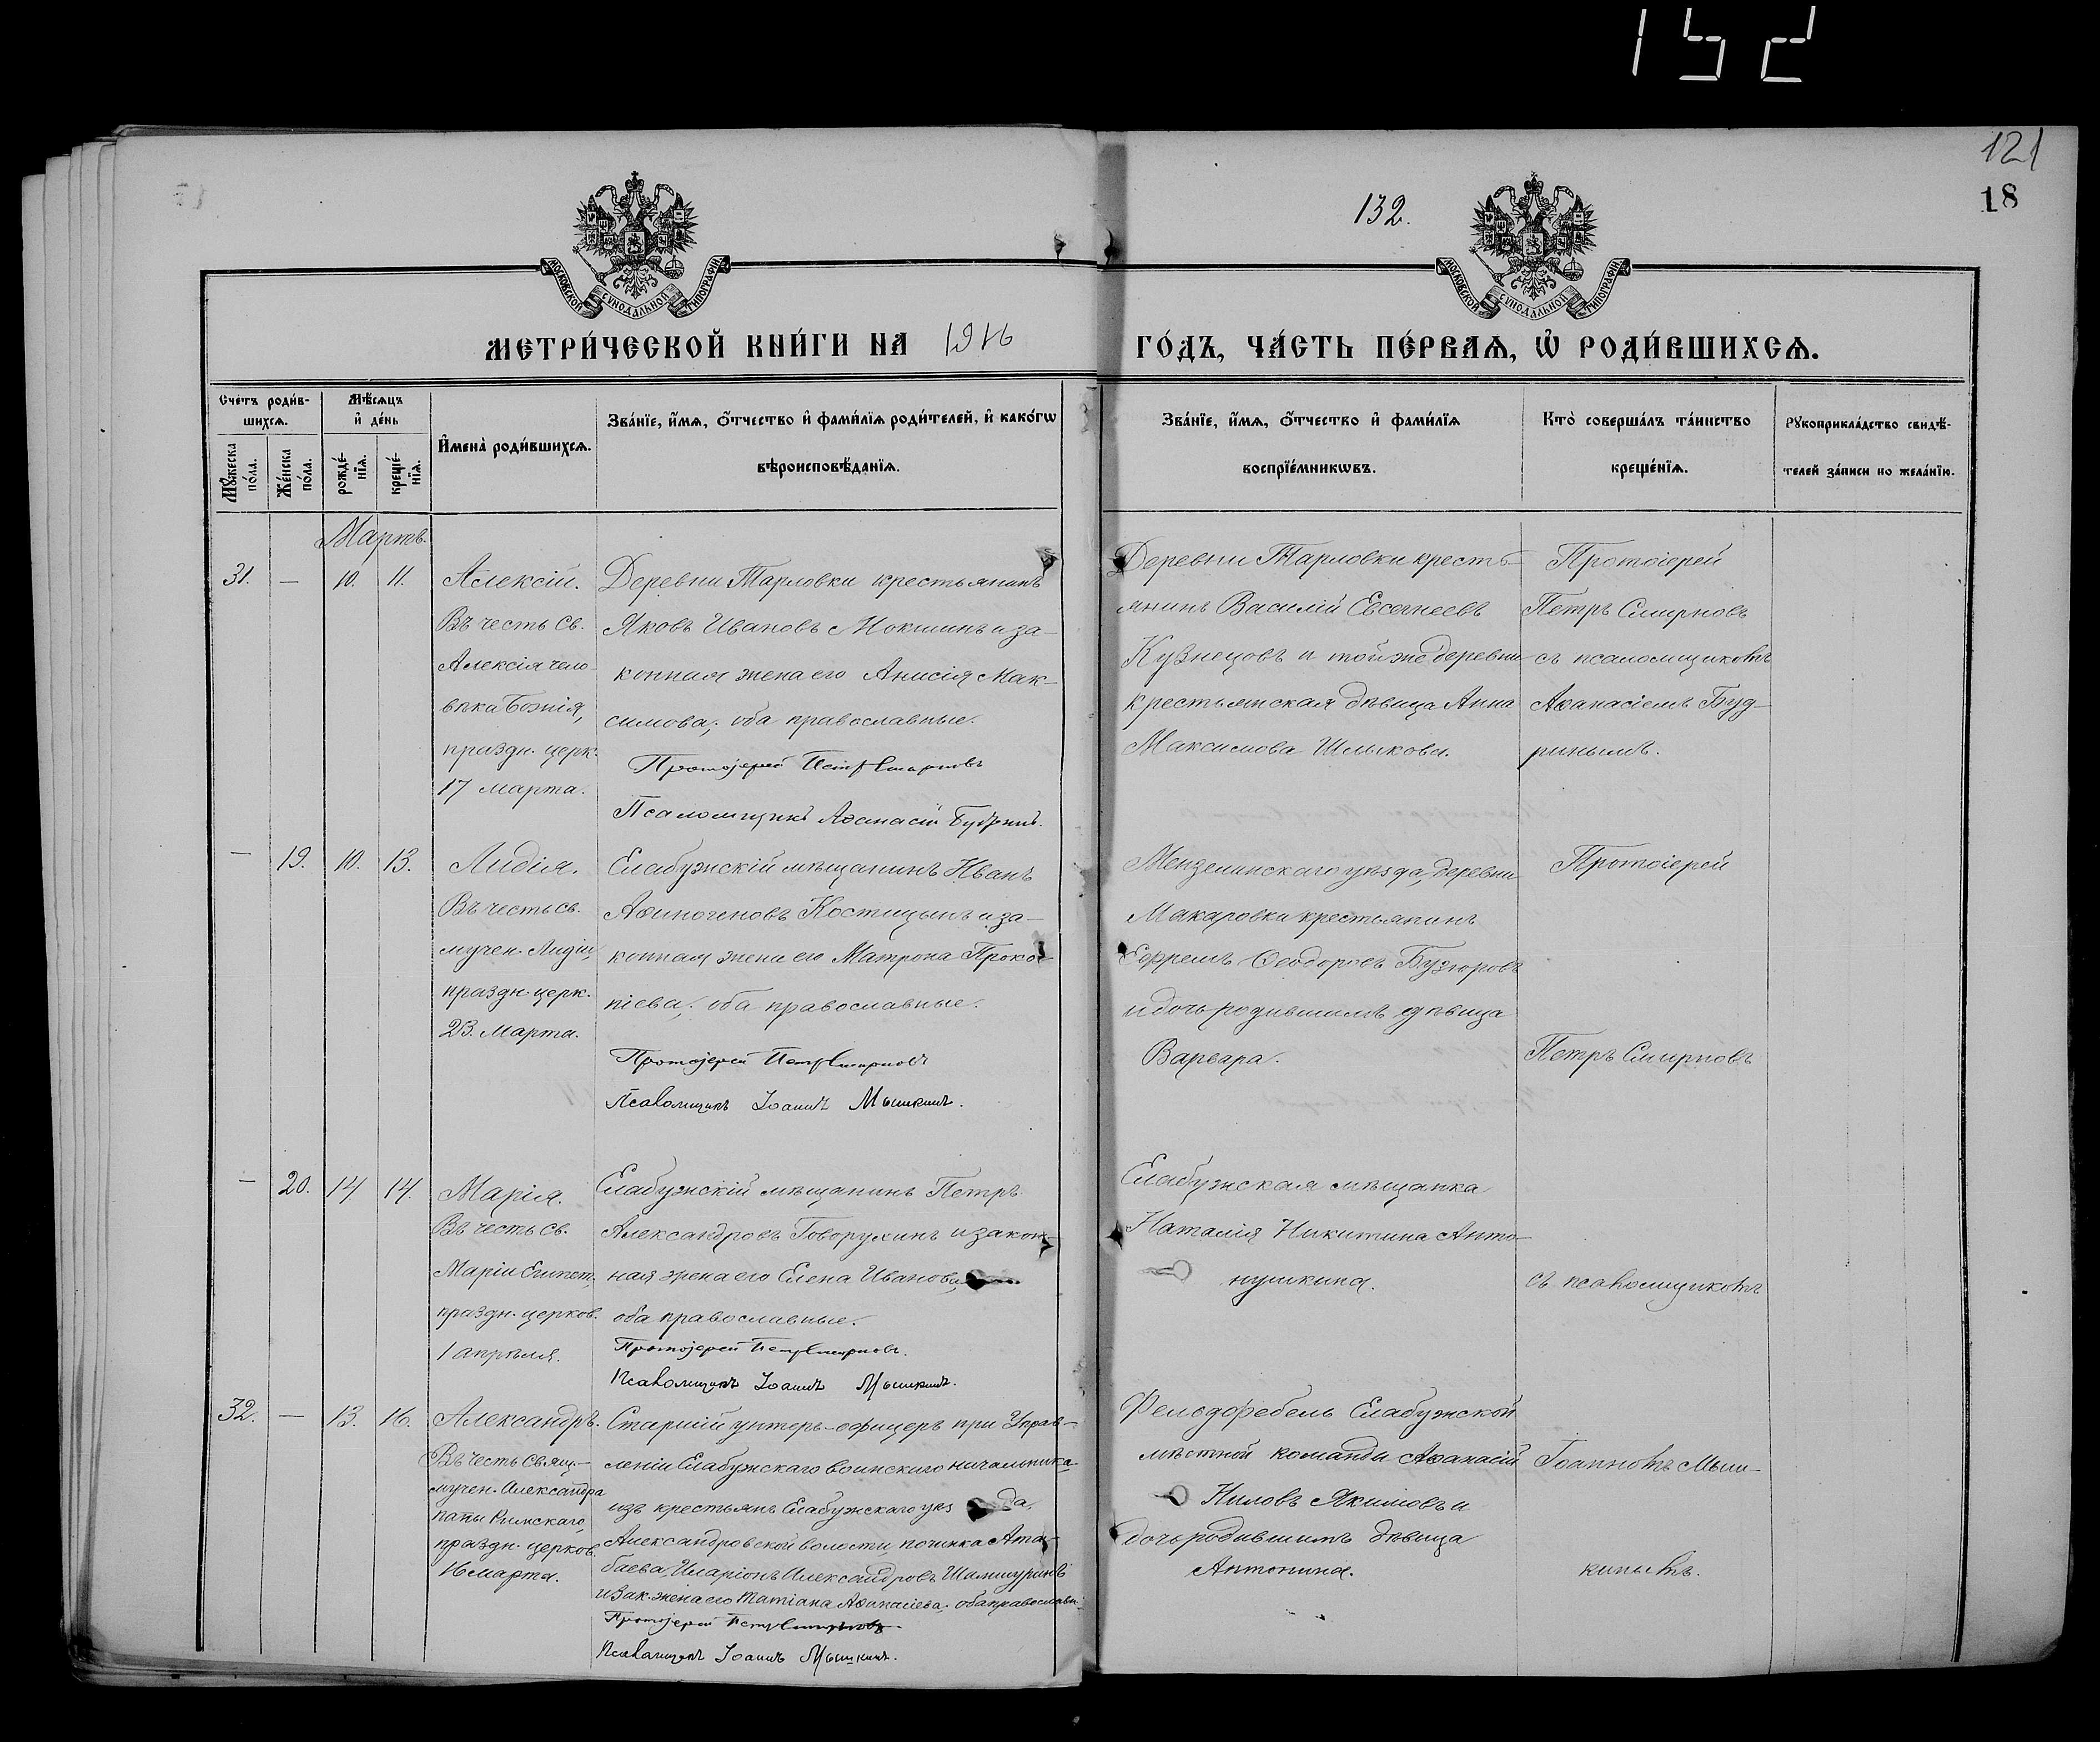 152
121
18
132.
МОСКОВСКОЙ СѴНОДАЛЬНОЙ ТИПОГРАФІИ
МОСКОВСКОЙ СѴНОДАЛЬНОЙ ТИПОГРАФІИ
МЕТРИ́ЧЕСКОЙ КНИ́ГИ НА 1916 ГО́ДЪ, ЧА́СТЬ ПЕ́РВАѦ, Ѡ҆ РОДИ́ВШИХСѦ.
Сче́тъ роди́в-
шихсѧ.
Мꙋ́жеска по́ла.
Же́нска по́ла.
Мѣ́сѧцъ
и҆ де́нь
рожде́-
нїѧ.
креще́-
нїѧ.
И҆мена̀ роди́вшихсѧ.
Зва́нїе, и҆́мѧ, ѻ҆́тчество и҆ фами́лїѧ роди́телей, и҆ како́гѡ
вѣроисповѣ́данїѧ.
Зва́нїе, и҆́мѧ, ѻ҆́тчество и҆ фами́лїѧ
воспрїе́мникѡвъ.
Кто̀ соверша́лъ та́инство
креще́нїѧ.
Рꙋкоприкла́дство свидѣ́-
телей за́писи по жела́нїю.
Мартъ.
31. — 10. 11.
Алексій.
Въ честь Св.
Алексія чело-
вѣка Божія,
праздн. церк.
17 марта.
Деревни Тарловки крестьянинъ
Яковъ Ивановъ Мокшинъ и за-
конная жена его Анисія Мак-
симова; оба православные.
Протоіерей Петръ Смирновъ
Псаломщикъ Аѳанасій Будринъ.
Деревни Тарловки кресть-
янинъ Василій Евсегнеевъ
Кузнецовъ и той же деревни
крестьянская дѣвица Анна
Максимова Шлыкова.
Протоіерей
Петръ Смирновъ
съ псаломщикомъ
Аѳанасіемъ Буд-
ринымъ.
— 19. 10. 13.
Лидія.
Въ честь св.
мучен. Лидіи,
праздн. церк.
23. Марта.
Елабужскій мѣщанинъ Иванъ
Аѳиногеновъ Костицынъ и за-
конная жена его Матрона Проко-
піева; оба православные.
Протоіерей Петръ Смирновъ
Псаломщикъ Іоаннъ Мышкинъ.
Мензелинскаго уѣзда, деревни
Макаровки крестьянинъ
Ефремъ Ѳеодоровъ
и дочь родившимъ дѣвица
Варвара.
Протоіерей
Петръ Смирновъ
— 20. 14 14.
Марія.
Въ честь св.
Маріи Египет.,
праздн. церков.
1 апрѣля.
Елабужскій мѣщанинъ Петръ
Александровъ Говорухинъ и закон-
ная жена его Елена Иванова,
оба православные.
Протоіерей Петръ Смирновъ.
Псаломщикъ Іоаннъ Мышкинъ.
Елабужская мѣщанка
Наталія Никитина Анто-
нушкина.
съ псаломщикомъ
32. — 13. 16.
Александръ.
Въ честь Свящ.-
мучен. Александра
папы Римскаго,
праздн. церков.
16 марта.
Старшій унтеръ-офицеръ при Управ-
леніи Елабужскаго воинскаго начальника
изъ крестьянъ Елабужскаго уѣзда,
Александровской волости, починка Ата-
баева, Иларіонъ Александровъ Шамшуринъ
и зак. жена его Татіана Аѳанасіева. оба православн.
Протоіерей Петръ Смирновъ.
Псаломщикъ Іоаннъ Мышкинъ.
Фельдфебель Елабужской
мѣстной команды Аѳанасій
Ниловъ Якимовъ и
дочь родившимъ дѣвица
Антонина.
Іоанномъ Мыш-
кинымъ.